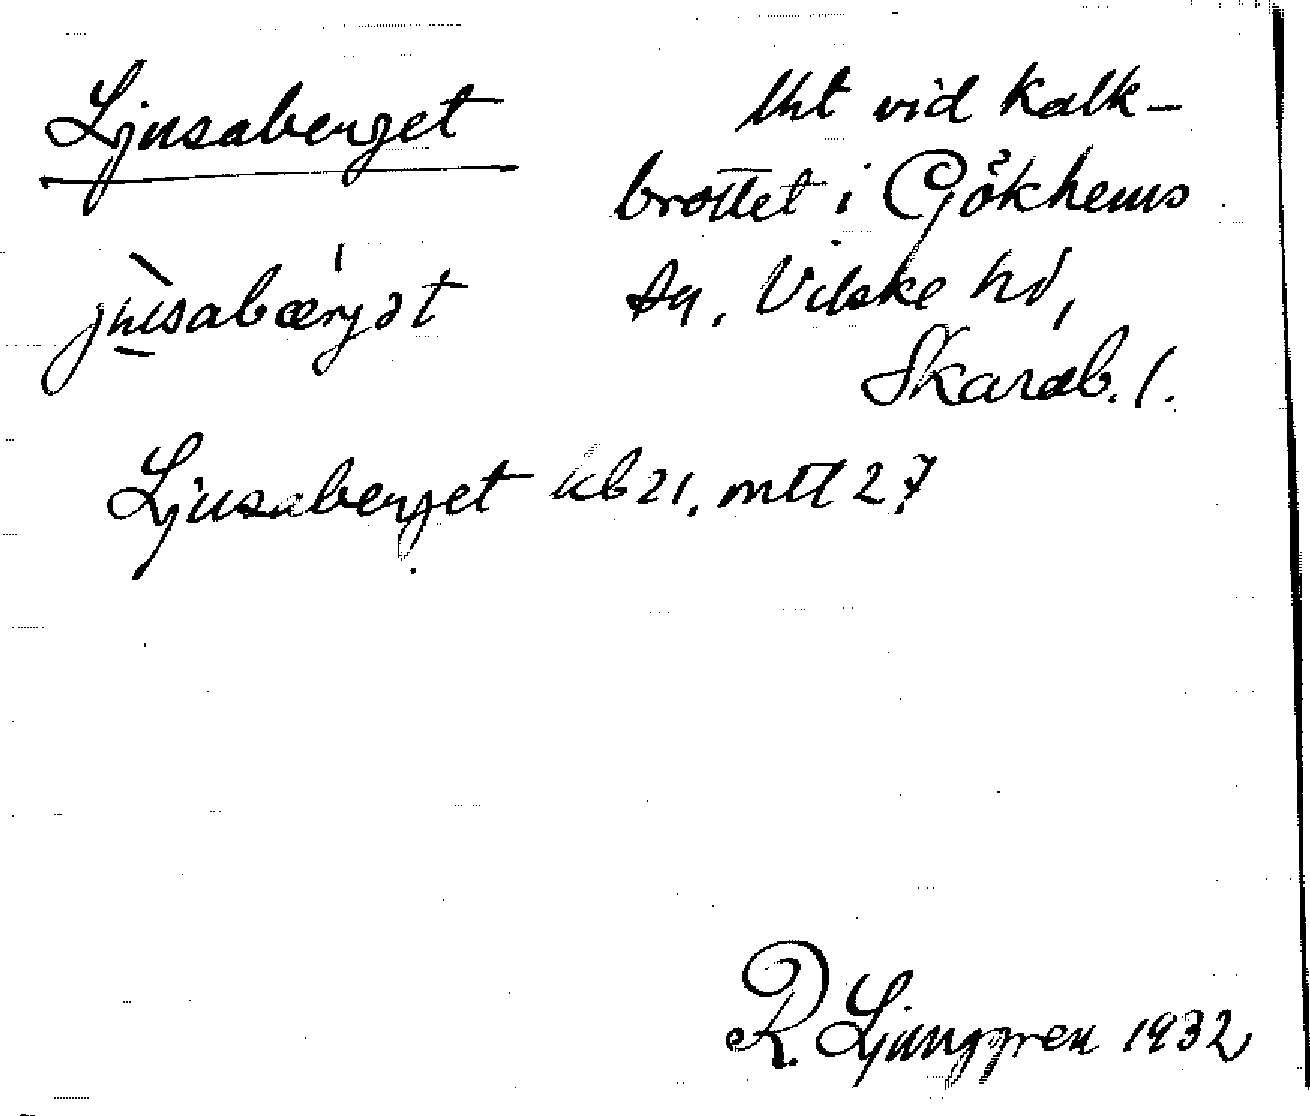 Ljusaberget
lht vid kalk-
brottet i Gökhems
sn, Vilske hd,
Skarab. l.
jusabærjət
Ljusaberget kb 21, mtl 27
R. Ljunggren 1932